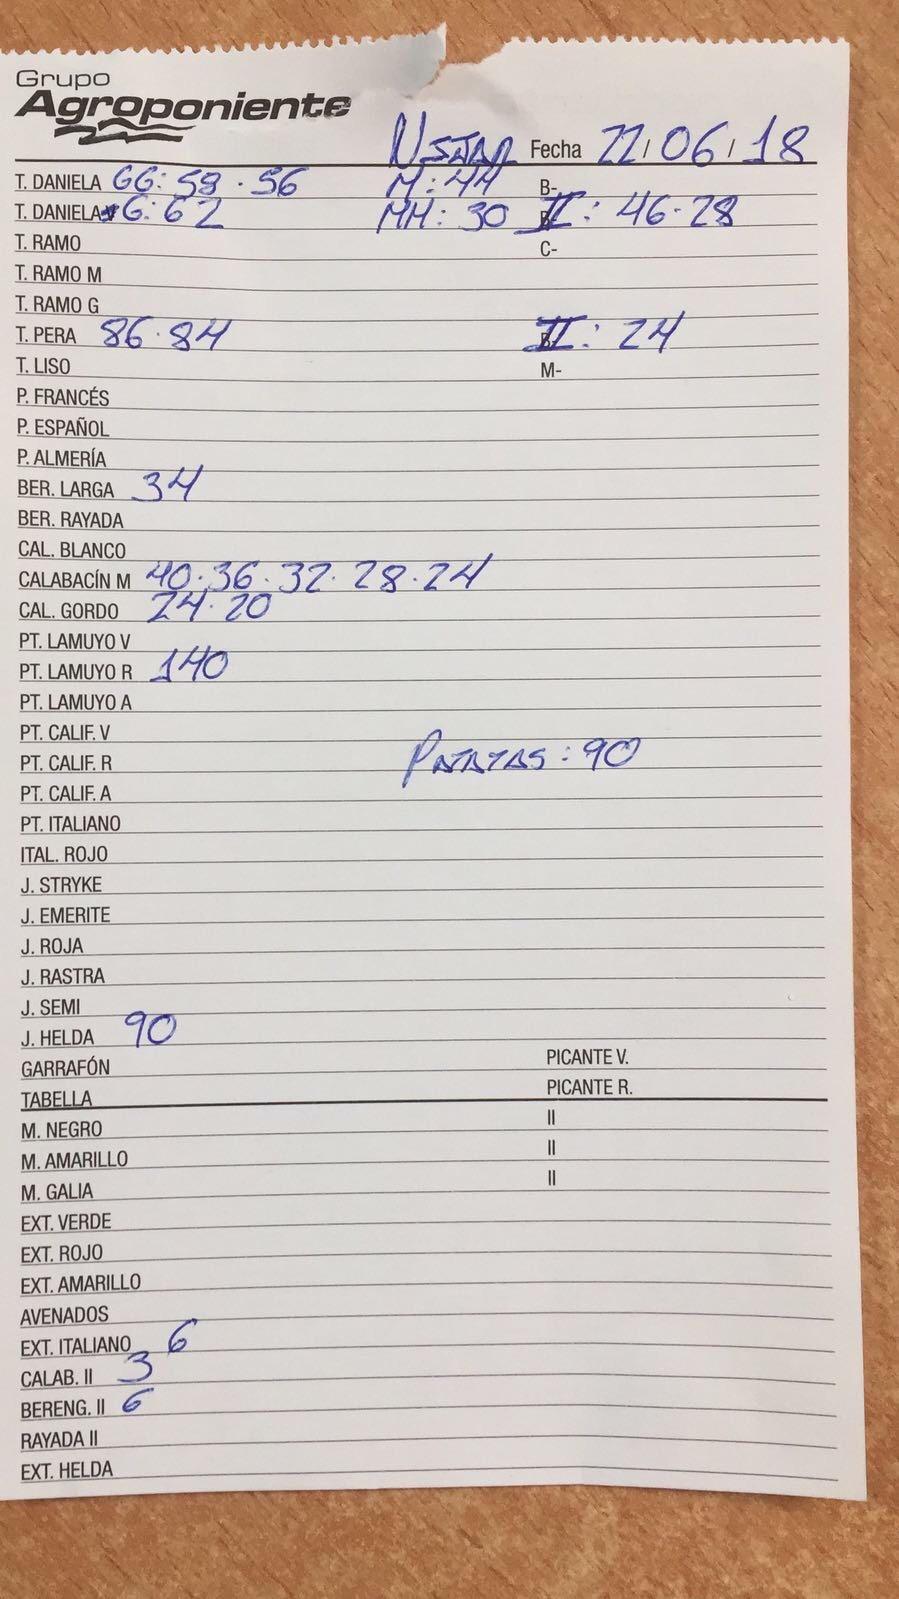 Grupo
Agroponiente
NIJAR Fecha 22/06/18
T. DANIELA GG: 58·56 M: 44 B-
T. DANIELA G: 62 MM: 30 II: 46·28
T. RAMO C-
T. RAMO M
T. RAMO G
T. PERA 86·84 II: 24
T. LISO M-
P. FRANCÉS
P. ESPAÑOL
P. ALMERÍA
BER. LARGA 34
BER. RAYADA
CAL. BLANCO
CALABACÍN M 40·36·32·28·24
CAL. GORDO 24·20
PT. LAMUYO V
PT. LAMUYO R 140
PT. LAMUYO A
PT. CALIF. V
PT. CALIF. R PATATAS: 90
PT. CALIF. A
PT. ITALIANO
ITAL. ROJO
J. STRYKE
J. EMERITE
J. ROJA
J. RASTRA
J. SEMI
J. HELDA 90
GARRAFÓN PICANTE V.
TABELLA PICANTE R.
M. NEGRO II
M. AMARILLO II
M. GALIA II
EXT. VERDE
EXT. ROJO
EXT. AMARILLO
AVENADOS
EXT. ITALIANO 6
CALAB. II 3
BERENG. II 6
RAYADA II
EXT. HELDA